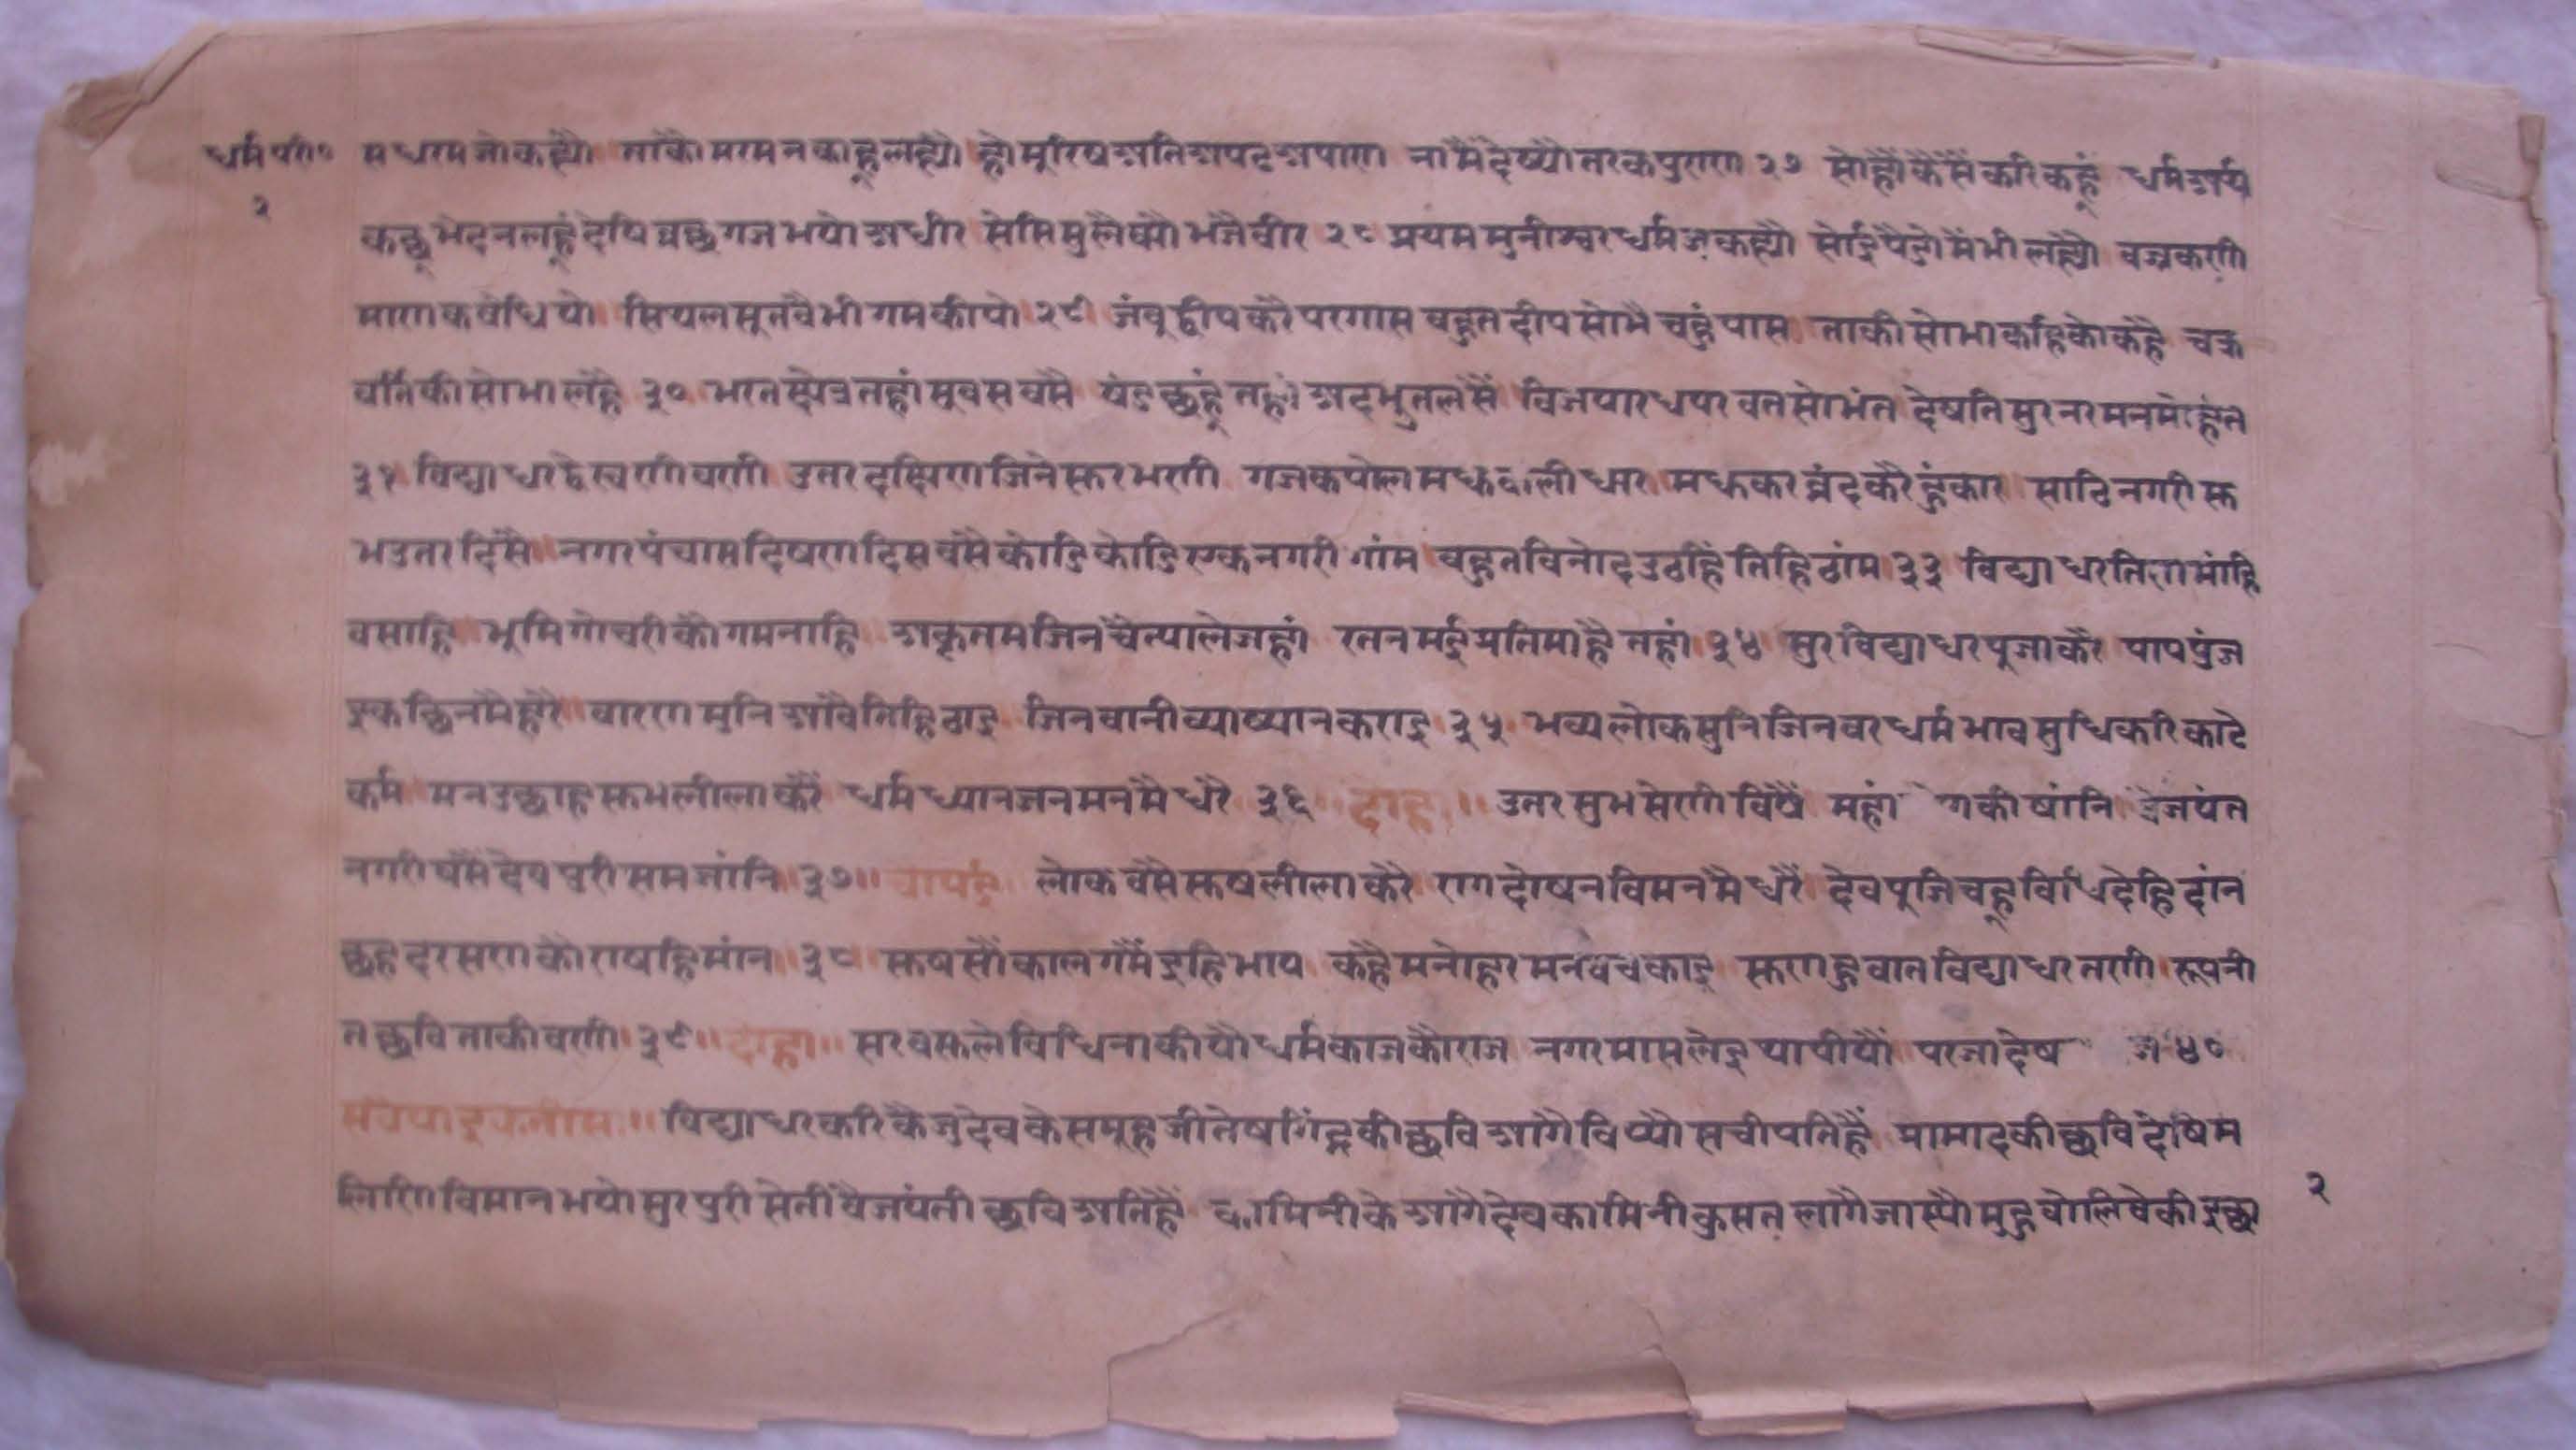 धर्म परी॰ म धरम जो कह्यौ ताकौ मरम न काहू लह्यौ हो मूरिष अति अपढ अपाण ना मैं देष्यौ तरक पुराण २७ सो हौं कैसैं करि कहूं धर्म अर्थ
२
कछू भेद न लहूं देषि व्रछ गज भयो अधीर से सिसु लैष्यौ भजै वीर २८ प्रथम मुनीस्वर धर्म जु कह्यौ सोई पैडो मैं भी लह्यौ वज्रकरणी
माणक वेधियो सिथल सूत वै भी गम कीयो २९ जंबुद्वीप करै परगास वहुत दीप सोभै चहुं पास ताकी सोभा कहि को कहै चक्र
वर्ति की सोभा लहै ३० भरत क्षेत्र तहां सुवस वसै षंड छहूं तहां अदभुत लसैं विजयारध परवत सोभंत देषति सुर नर मन मोहंत
३१ विद्याधर द्वे स्रेणी वणी उतर दक्षिण जिनेस्वर भणी गज कपोल मद्य वाली धार मधुकर व्रंद करै हुंकार साठि नगरी सु
भ उतर दिसै नगर पंचास दषिण दिस वसै कोडि कोडि एक नगरी गांम वहुत विनोद उठहिं तिहि ठांम ३३ विद्याधर तिण मांहि
वसाहि भूमिगोचरी कौ गम नाहि अकृतम जिन चैत्याले जहां रतनमई प्रतिमा है तहां ३४ सुर विद्याधर पूजा करै पाप पुंज
इक छिन मै हरै चारण मुनि आवै तिहि ठाइ जिनवानी व्याष्यान कराइ ३५ भव्य लोक सुनि जिनवर धर्म भाव सुधि करि काटे
कर्म मन उछाह सुभ लीला करैं धर्म ध्यान जन मन मै धरै ३६ दोहा ॥ उतर सुभ सेणी विषैं महां की षांनि वैजयंत
नगरी वसै देवपुरी सम जांनि ३७॥ चौपई लोक वसै सुष लीला करै राग दोष नवि मन मै धरैं देव पूजि चहू विधि देहि दांन
छह दरसण कौ राषहि मांन ३८ सुष सौं काल गमैं इहि भाय कहै मनोहर मन वच काइ सुणहु वात विद्याधर तणी रूपनी
त छवि ताकी वणी ३९॥ दोहा॥ सरव सुले विधिना कीयौ धर्म काज कौ राज नगर मास लेइ थापीयौं परजा देष ज ४०
सवैयाइकतीसा॥ विद्याधर करि कै जु देव के समूह जीते षगिंद्र की छवि आगै विप्यौ सचीपति हैं प्रासाद की छवि देषि म
लिणि विमान भयो सुरपुरी सेती वैजयंती छवि अति है कामिनी के आगै देवकामिनी कुसत लागै जास्यौ मुहु वोलिवे की इछा
२